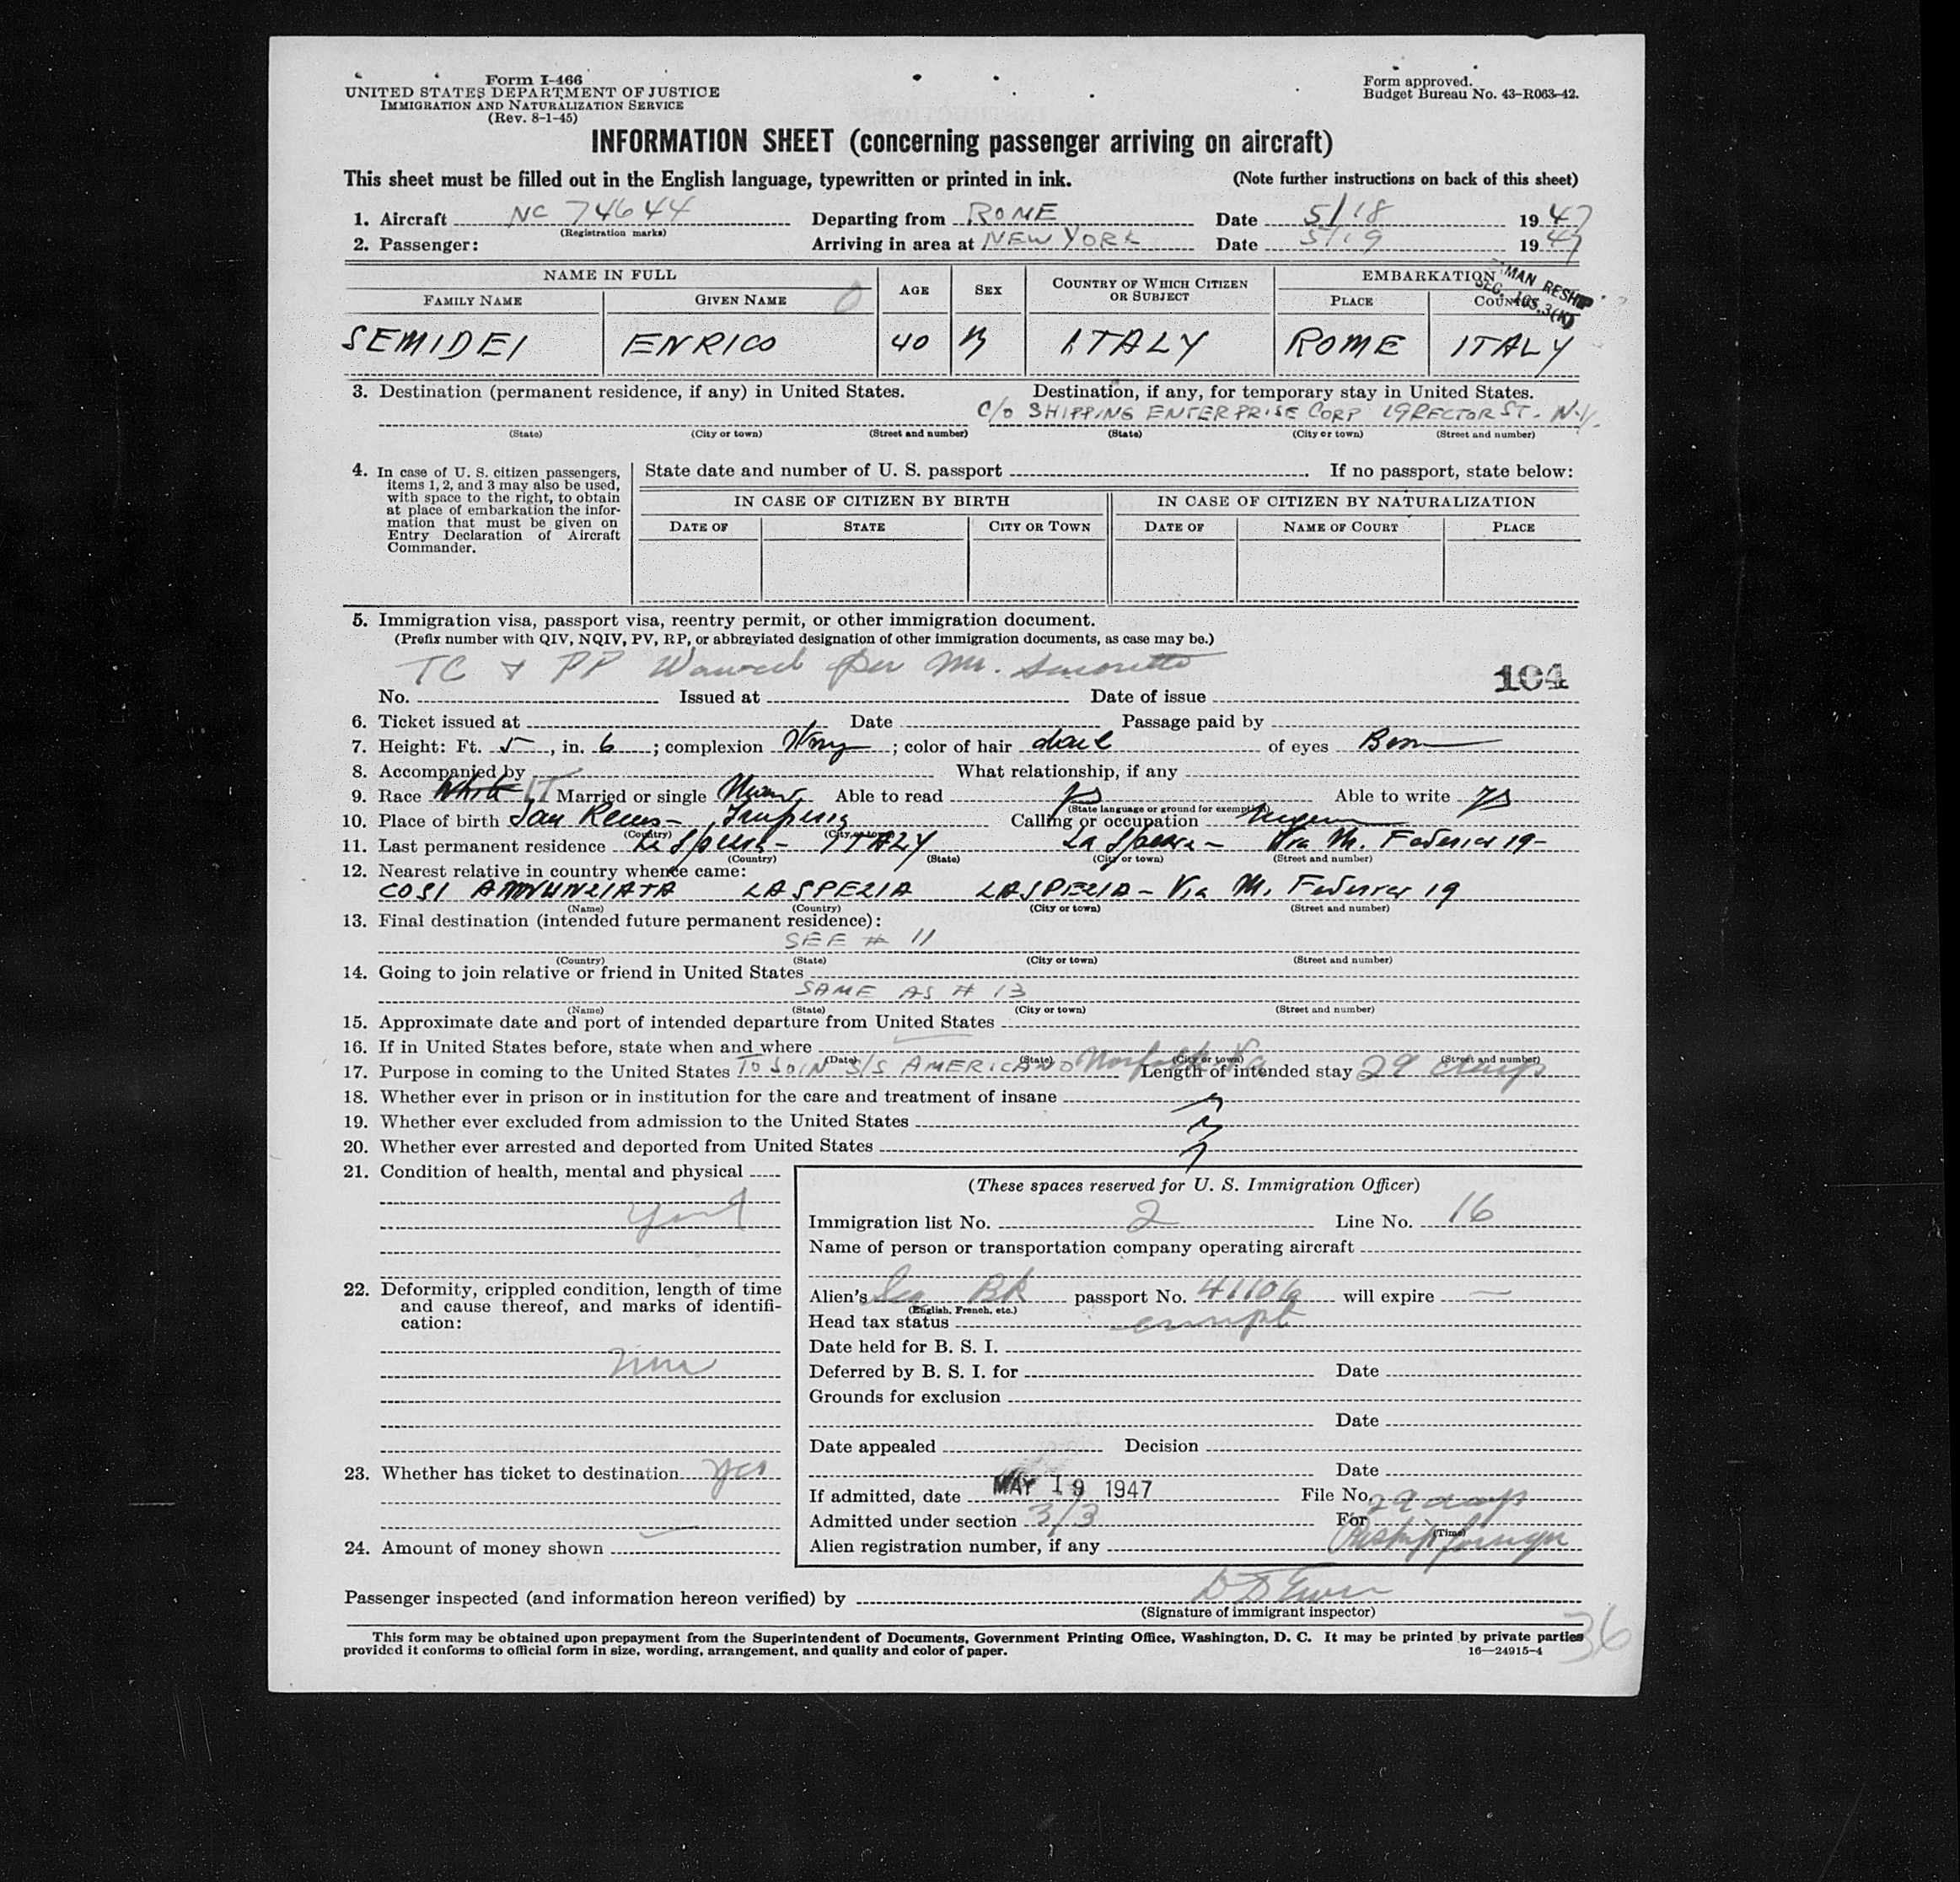 Form I-466
UNITED STATES DEPARTMENT OF JUSTICE
IMMIGRATION AND NATURALIZATION SERVICE
(Rev. 8-1-45)
Form approved.
Budget Bureau No. 43-R063-42.
INFORMATION SHEET (concerning passenger arriving on aircraft)
This sheet must be filled out in the English language, typewritten or printed in ink. (Note further instructions on back of this sheet)
1. Aircraft NC 74644 Departing from ROME Date 5/18 1947
(Registration marks)
2. Passenger: Arriving in area at NEW YORK Date 5/19 1947
NAME IN FULL AGE SEX COUNTRY OF WHICH CITIZEN OR SUBJECT EMBARKATION
FAMILY NAME GIVEN NAME PLACE COUNTRY
MAN RESHIP
SEC. 105.3(K)
SEMIDEI ENRICO 40 M ITALY ROME ITALY
3. Destination (permanent residence, if any) in United States. Destination, if any, for temporary stay in United States.
C/o SHIPPING ENTERPRISE CORP 19 RECTOR ST. N.Y.
(State) (City or town) (Street and number) (State) (City or town) (Street and number)
4. In case of U. S. citizen passengers, items 1, 2, and 3 may also be used, with space to the right, to obtain at place of embarkation the information that must be given on Entry Declaration of Aircraft Commander.
State date and number of U. S. passport If no passport, state below:
IN CASE OF CITIZEN BY BIRTH IN CASE OF CITIZEN BY NATURALIZATION
DATE OF STATE CITY OR TOWN DATE OF NAME OF COURT PLACE
5. Immigration visa, passport visa, reentry permit, or other immigration document.
(Prefix number with QIV, NQIV, PV, RP, or abbreviated designation of other immigration documents, as case may be.)
TC & PP Waived per Mr.
104
No. Issued at Date of issue
6. Ticket issued at Date Passage paid by
7. Height: Ft. 5, in. 6; complexion ; color of hair dark of eyes Brn
8. Accompanied by What relationship, if any
9. Race White IT Married or single Able to read yes Able to write yes
(State language or ground for exemption)
10. Place of birth San Remo - Imperia Calling or occupation
(Country) (City or town)
11. Last permanent residence La Spezia - ITALY La Spezia - Via M. Federici 19-
(Country) (State) (City or town) (Street and number)
12. Nearest relative in country whence came:
COSI ANNUNZIATA LA SPEZIA LA SPEZIA - Via M. Federici 19
(Name) (Country) (City or town) (Street and number)
13. Final destination (intended future permanent residence):
SEE # 11
(Country) (State) (City or town) (Street and number)
14. Going to join relative or friend in United States
SAME AS # 13
(Name) (State) (City or town) (Street and number)
15. Approximate date and port of intended departure from United States
16. If in United States before, state when and where
(Date) (State) (City or town) (Street and number)
17. Purpose in coming to the United States TO JOIN S/S AMERICANO Norfolk Va Length of intended stay 29 days
18. Whether ever in prison or in institution for the care and treatment of insane
19. Whether ever excluded from admission to the United States
20. Whether ever arrested and deported from United States
21. Condition of health, mental and physical
good
22. Deformity, crippled condition, length of time and cause thereof, and marks of identification:
none
23. Whether has ticket to destination yes
24. Amount of money shown
(These spaces reserved for U. S. Immigration Officer)
Immigration list No. 2 Line No. 16
Name of person or transportation company operating aircraft
Alien's Sea BK passport No. 41106 will expire —
(English, French, etc.)
Head tax status exempt
Date held for B. S. I.
Deferred by B. S. I. for Date
Grounds for exclusion
Date
Date appealed Decision
Date
If admitted, date MAY 19 1947 File No.
29 days
Admitted under section 3/3 For
(Time)
Reship foreign
Alien registration number, if any
Passenger inspected (and information hereon verified) by
(Signature of immigrant inspector)
36
This form may be obtained upon prepayment from the Superintendent of Documents, Government Printing Office, Washington, D. C. It may be printed by private parties
provided it conforms to official form in size, wording, arrangement, and quality and color of paper. 16—24915-4